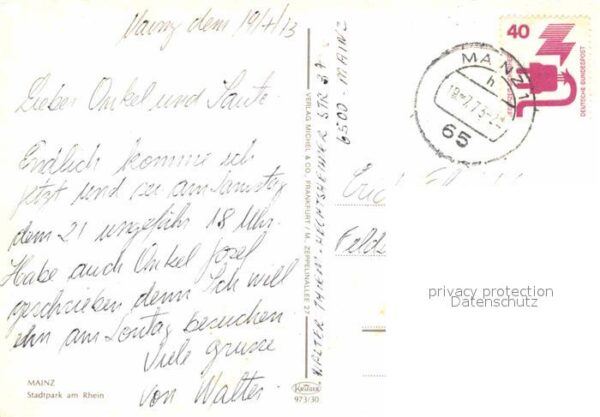 Mainz dem 19/7/73
Lieber Onkel und Tante.
Endlich komme ich
jetzt und zw am Samstag
dem 21 ungefähr 18 Uhr.
Habe auch Onkel Josef
geschrieben denn Ich will
ihn am Sontag besuchen.
Viele grusse
von Walter.
MAINZ
Stadtpark am Rhein
VERLAG MICHEL & CO., FRANKFURT/M., ZEPPELINALLEE 27
Krüger
973/30
WALTER STR 37
6500 - MAINZ
MAINZ 1
h
65
40
DEUTSCHE BUNDESPOST
Erich
Felde
privacy protection
Datenschutz